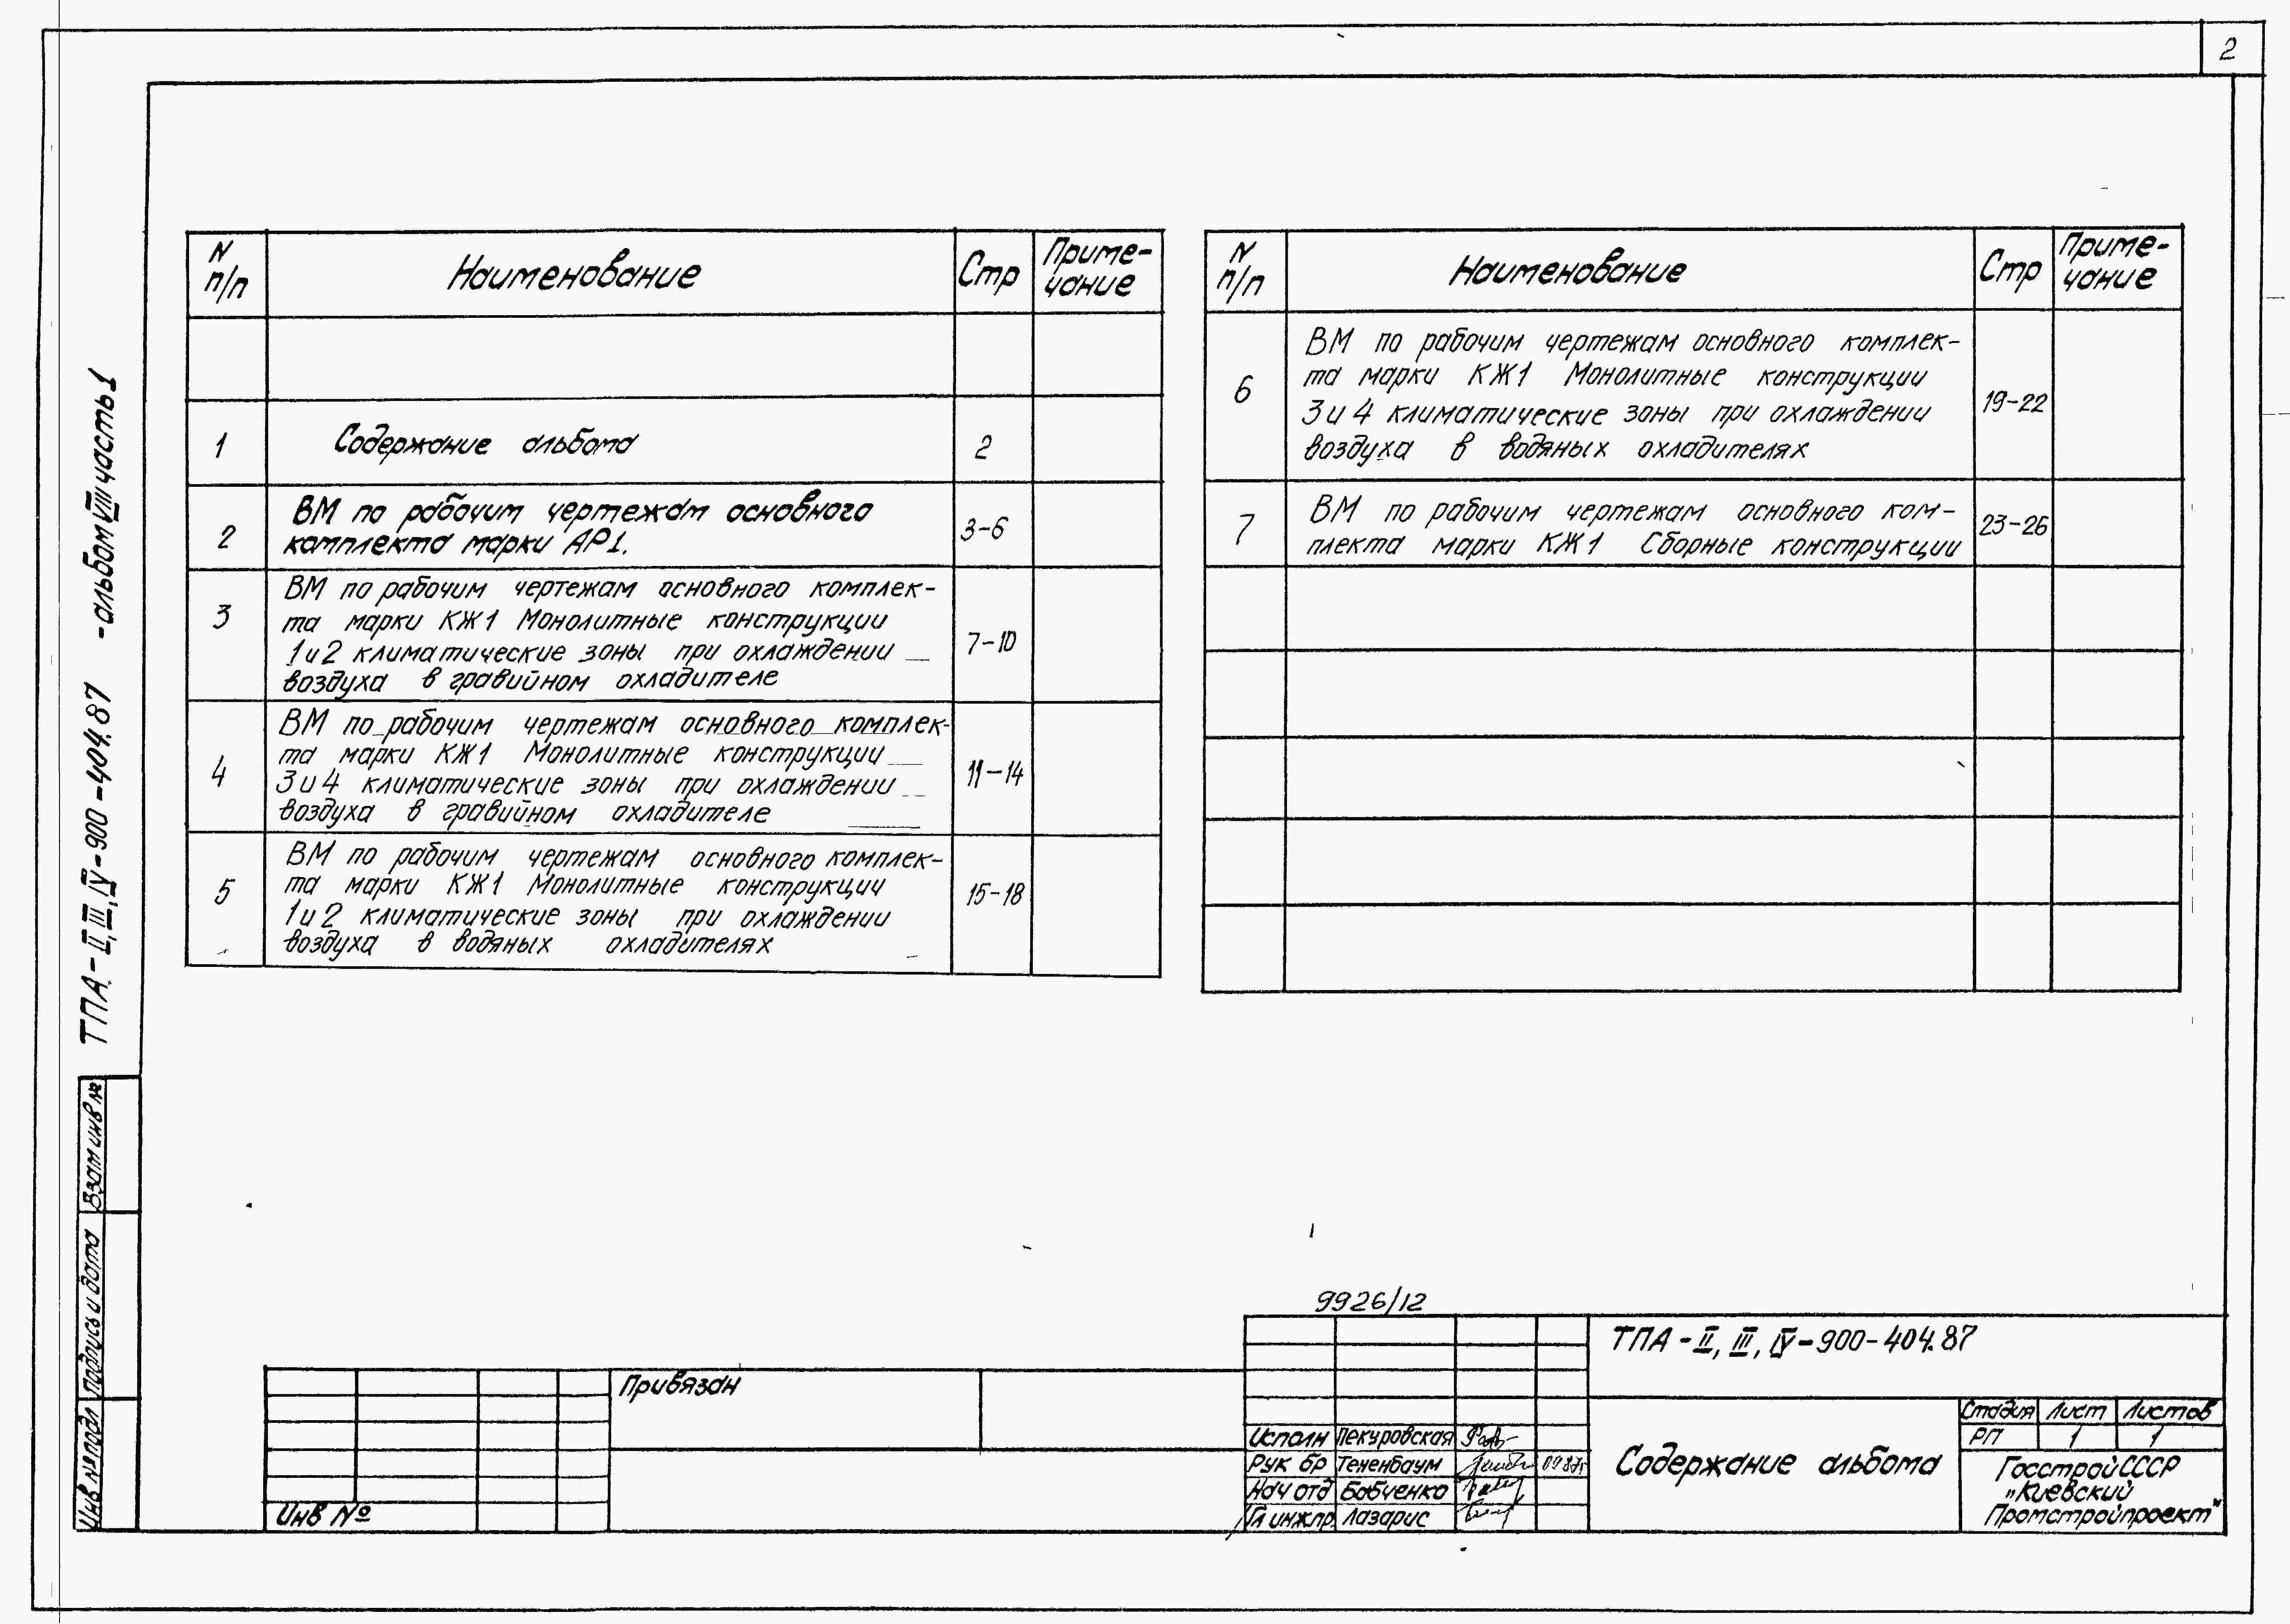 2
N п/п Наименование Стр Приме-
чание
1 Содержание альбома 2
2 ВМ по рабочим чертежам основного
комплекта марки АР1. 3-6
3 ВМ по рабочим чертежам основного комплек-
та марки КЖ1 Монолитные конструкции
1 и 2 климатические зоны при охлаждении
воздуха в гравийном охладителе 7-10
4 ВМ по рабочим чертежам основного комплек-
та марки КЖ1 Монолитные конструкции
3 и 4 климатические зоны при охлаждении
воздуха в гравийном охладителе 11-14
5 ВМ по рабочим чертежам основного комплек-
та марки КЖ1 Монолитные конструкции
1 и 2 климатические зоны при охлаждении
воздуха в водяных охладителях 15-18
N п/п Наименование Стр Приме-
чание
6 ВМ по рабочим чертежам основного комплек-
та марки КЖ1 Монолитные конструкции
3 и 4 климатические зоны при охлаждении
воздуха в водяных охладителях 19-22
7 ВМ по рабочим чертежам основного ком-
плекта марки КЖ1 Сборные конструкции 23-26
ТПА-II, III, IV-900-404.87 -альбом VIII часть 1
Взам инв №
Подпись и дата
Инв № подл
Привязан
Инв №
9926/12
ТПА-II, III, IV-900-404.87
Исполн Пекуровская
Рук бр Тененбаум
Нач отд Бабченко
Гл инж пр Лазарис
Содержание альбома
Стадия Лист Листов
РП 1 1
Госстрой СССР
„Киевский
Промстройпроект"